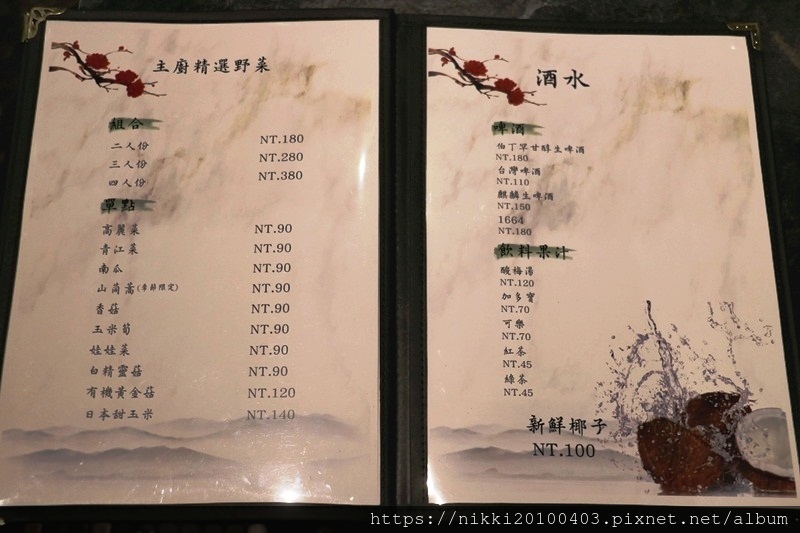 主廚精選野菜
組合
二人份 NT.180
三人份 NT.280
四人份 NT.380
單點
高麗菜 NT.90
青江菜 NT.90
南瓜 NT.90
山茼蒿(季節限定) NT.90
香菇 NT.90
玉米筍 NT.90
娃娃菜 NT.90
白精靈菇 NT.90
有機黃金菇 NT.120
日本甜玉米 NT.140
酒水
啤酒
伯丁罕甘醇生啤酒
NT.180
台灣啤酒
NT.110
麒麟生啤酒
NT.150
1664
NT.180
飲料果汁
酸梅湯
NT.120
加多寶
NT.70
可樂
NT.70
紅茶
NT.45
綠茶
NT.45
新鮮椰子
NT.100
https://nikki20100403.pixnet.net/album